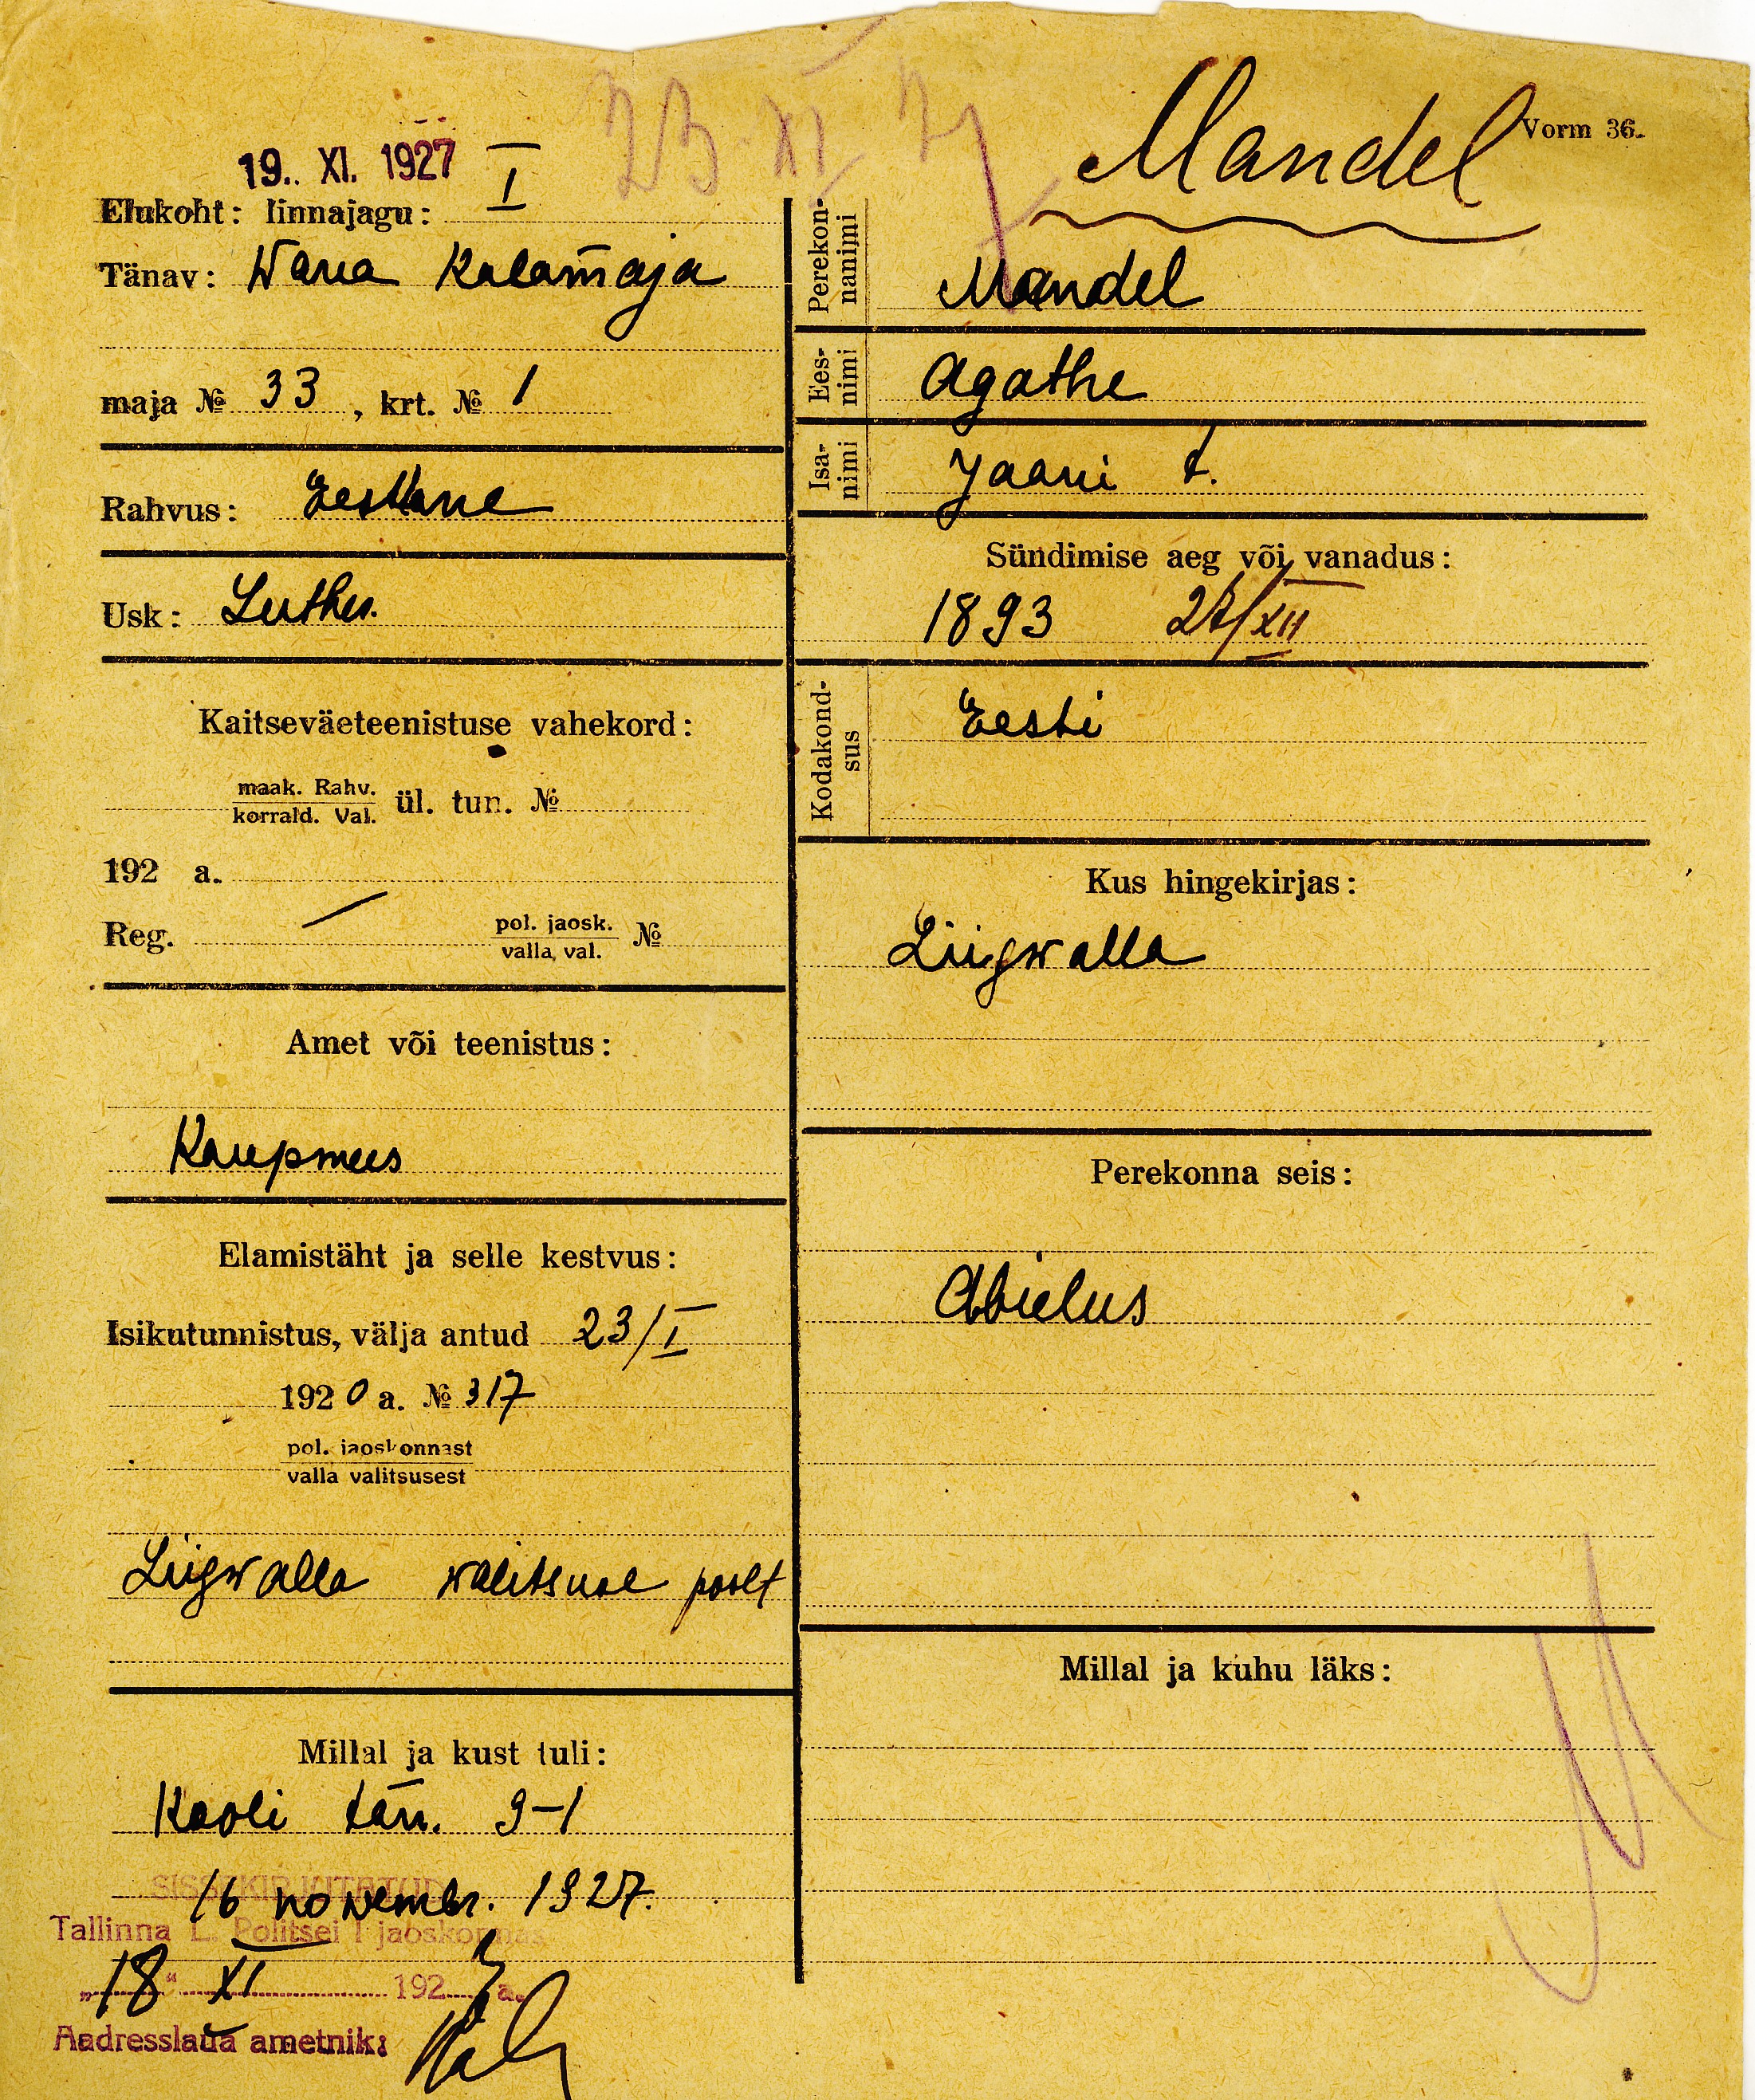 23. XI
Mandel
Vorm 36.
19. XI. 1927
Elukoht: linnajagu: I
Tänav: Wana Kalamaja
maja № 33, krt. № 1
Rahvus: Eestlane
Usk: Luther.
Kaitseväeteenistuse vahekord:
maak. Rahv.
korrald. Val. ül. tun. №
192 a.
Reg. — pol. jaosk.
valla, val. №
Amet või teenistus:
Kaupmees
Elamistäht ja selle kestvus:
Isikutunnistus, välja antud 23/I
1920 a. № 317
pol. jaoskonnast
valla valitsusest
Liigwalla walitsuse poolt
Millal ja kust tuli:
Kooli tän. 9-1
16 nowembr. 1927.
SISSEKIRJUTATUD
Tallinna L. Politsei I jaoskonnas
"18" XI 1927 a.
Aadresslaua ametnik:
Perekon-
nanimi
Mandel
Ees-
nimi
Agathe
Isa-
nimi
Jaani t.
Sündimise aeg või vanadus:
1893 27/XII
Kodakond-
sus
Eesti
Kus hingekirjas:
Liigwalla
Perekonna seis:
Abielus
Millal ja kuhu läks: